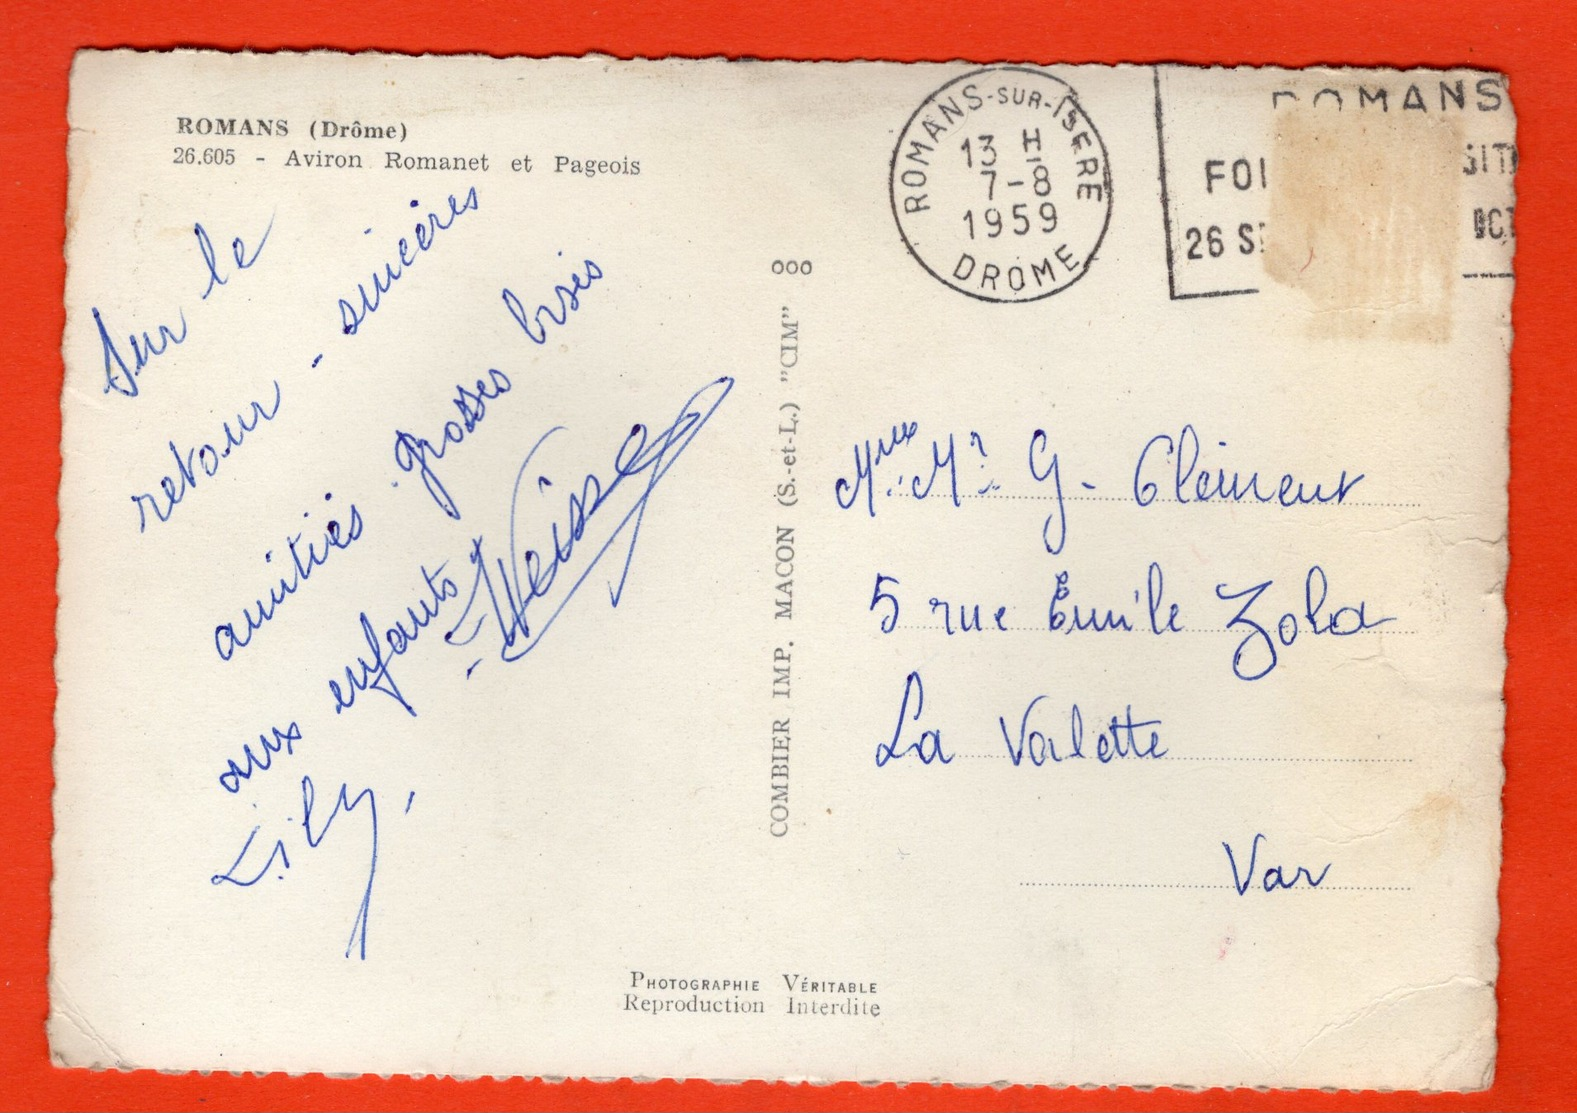 ROMANS (Drôme)
26.605 - Aviron Romanet et Pageois
Sur le
retour - sincères
amitiés. grosses bises
aux enfants
Weiss
Lily,
ooo
COMBIER IMP. MACON (S.-et-L.) "CIM"
ROMANS-SUR-ISERE
13 H
7-8
1959
DROME
ROMANS
FOI
26 S
OCT
Mr G. Clément
5 rue Emile Zola
La Valette
Var
PHOTOGRAPHIE VÉRITABLE
Reproduction Interdite